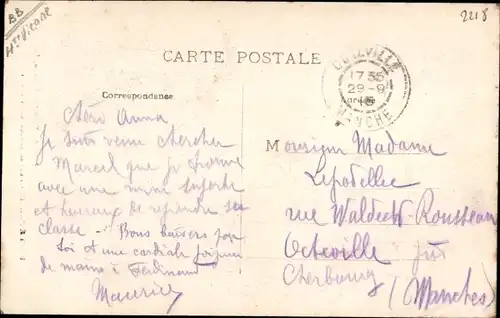 BB
Hte Vienne
2218
CARTE POSTALE
QUILVILLE
17 35
29-9
MANCHE
Correspondance
Adresse
Chère Anna
Je suis venu chercher
Marcel que je trouve
avec une mine superbe
et heureux de reprendre sa
classe. Bons baisers pour
toi et une cordiale poignée
de mains à Ferdinand
Maurice
Monsieur Madame
rue Waldeck-Rousseau
Octeville
Cherbourg
(Manche)